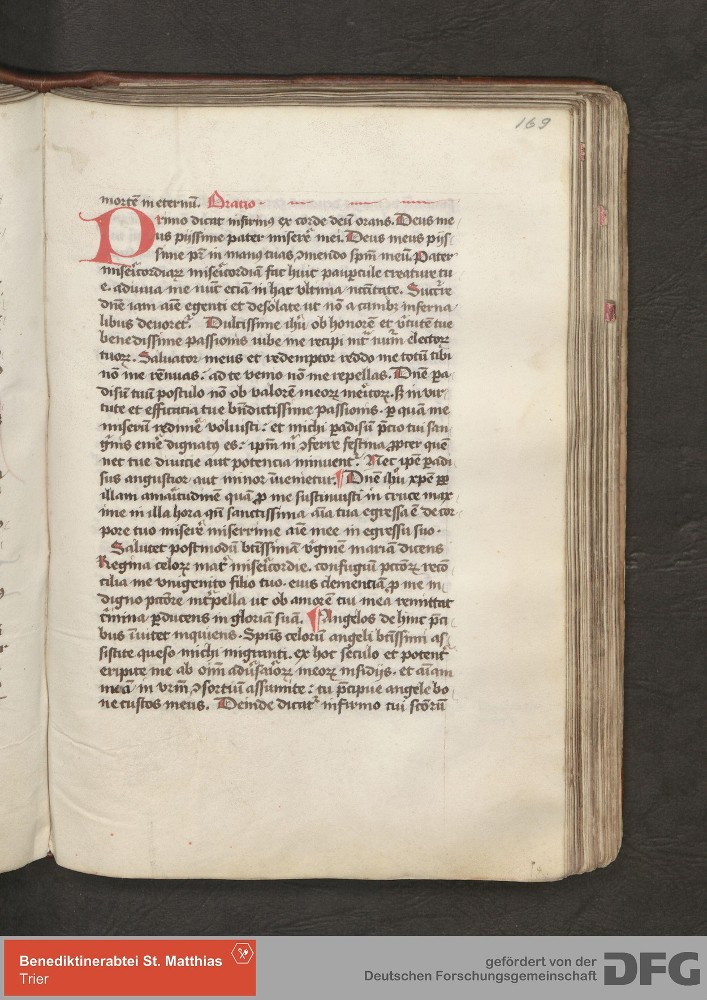 169
mortē in eternū. Oratio
Primo dicat infirmꝰ ex corde deū orans. Deus me
us pijssime pater miserē mei. Deus meus pijs
sime pr̄ in manꝰ tuas ꝯmendo sp̄m meū. Pater
misericordiaꝝ misericordiā fac huic paupercule creature tu
e. adiuua me nunc eciā in hac vltima nc̄citate. Succ̄re
dn̄e iam aīe egenti et desolate ut nō a canibꝫ inferna
libus deuoretᷣ. Dulcissime ihū ob honorē et v̄tutē tue
benedissime passionis iube me recipi int̄ nūm̄ electoꝝ
tuoꝝ. Saluator meus et redemptor reddo me totū tibi
nō me rēnuas: ad te venio nō me repellas. Dn̄e pa
disū tuū postulo nō ob valorē meoꝝ meritoꝝ. sꝫ in vir
tute et efficacia tue bn̄dictissime passionis. ꝑ quā me
miserū redimē voluisti: et michi ꝑadisū p̄cio tui san
gn̄is emē dignatꝰ es: ip̄m m̄ ꝯferre festina ꝓpter quē
nec tue diuicie aut potencia minuentᷣ. Nec ip̄e ꝑadi
sus angustior aut minor inuenietur. Dn̄e ihū xp̄e ꝓp
illam amaritudinē quā ꝓ me sustinuisti in cruce max
ime in illa hora qn̄ sanctissima aīa tua egressa ē de cor
pore tuo miserē miserrime aīe mee in egressu suo.
Salutet postmodū bt̄issimā v̄ginē mariā dicens
Regina celoꝝ mat̄ misericordie. confugiū pctōꝝ recō
cilia me vnigenito filio tuo. eius clementiā ꝓ me in
digno pctōre int̄pella ut ob amorē tui mea remittat
c̄mina ꝑducens in gloriā suā. Angelos de hinc p̄ci
bus inuitet inquiens. Sp̄us celorū angeli bt̄issimi as
sistite queso michi migranti. ex hoc seculo et potent̄
eripite me ab om̄i aduersarioꝝ meoꝝ insidijs. et aīam
meā in vrm̄ ꝯsortiū assumite: tu p̄cipue angele bo
ne custos meus. Deinde dicatᷣ infirmo tui sctōrū
Benediktinerabtei St. Matthias
Trier
gefördert von der
Deutschen Forschungsgemeinschaft
DFG